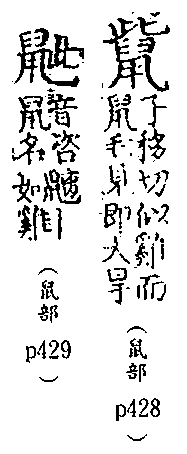 子移切似雞而
鼠毛見即大旱
(鼠部
p428
)
音咨
鼠名如雞
(鼠部
p429
)